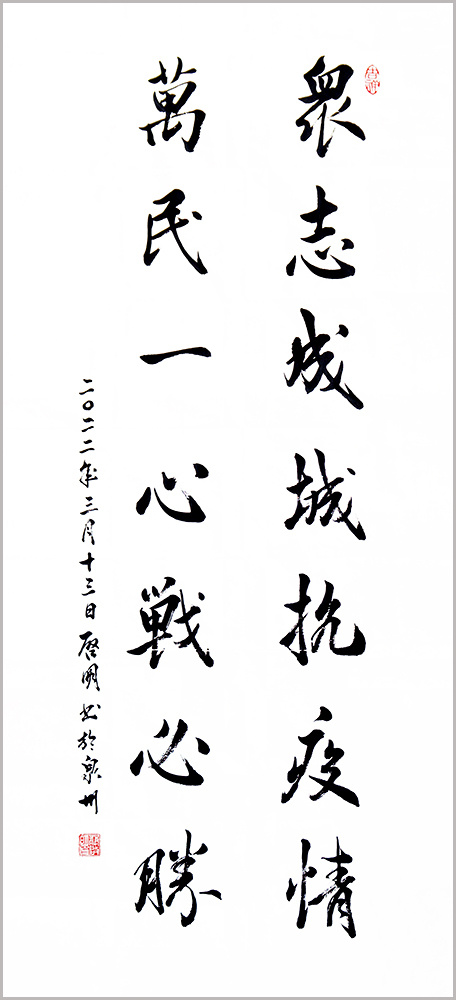 眾志成城抗疫情
萬民一心戰必勝
二〇二二年三月十三日啓明书於泉州